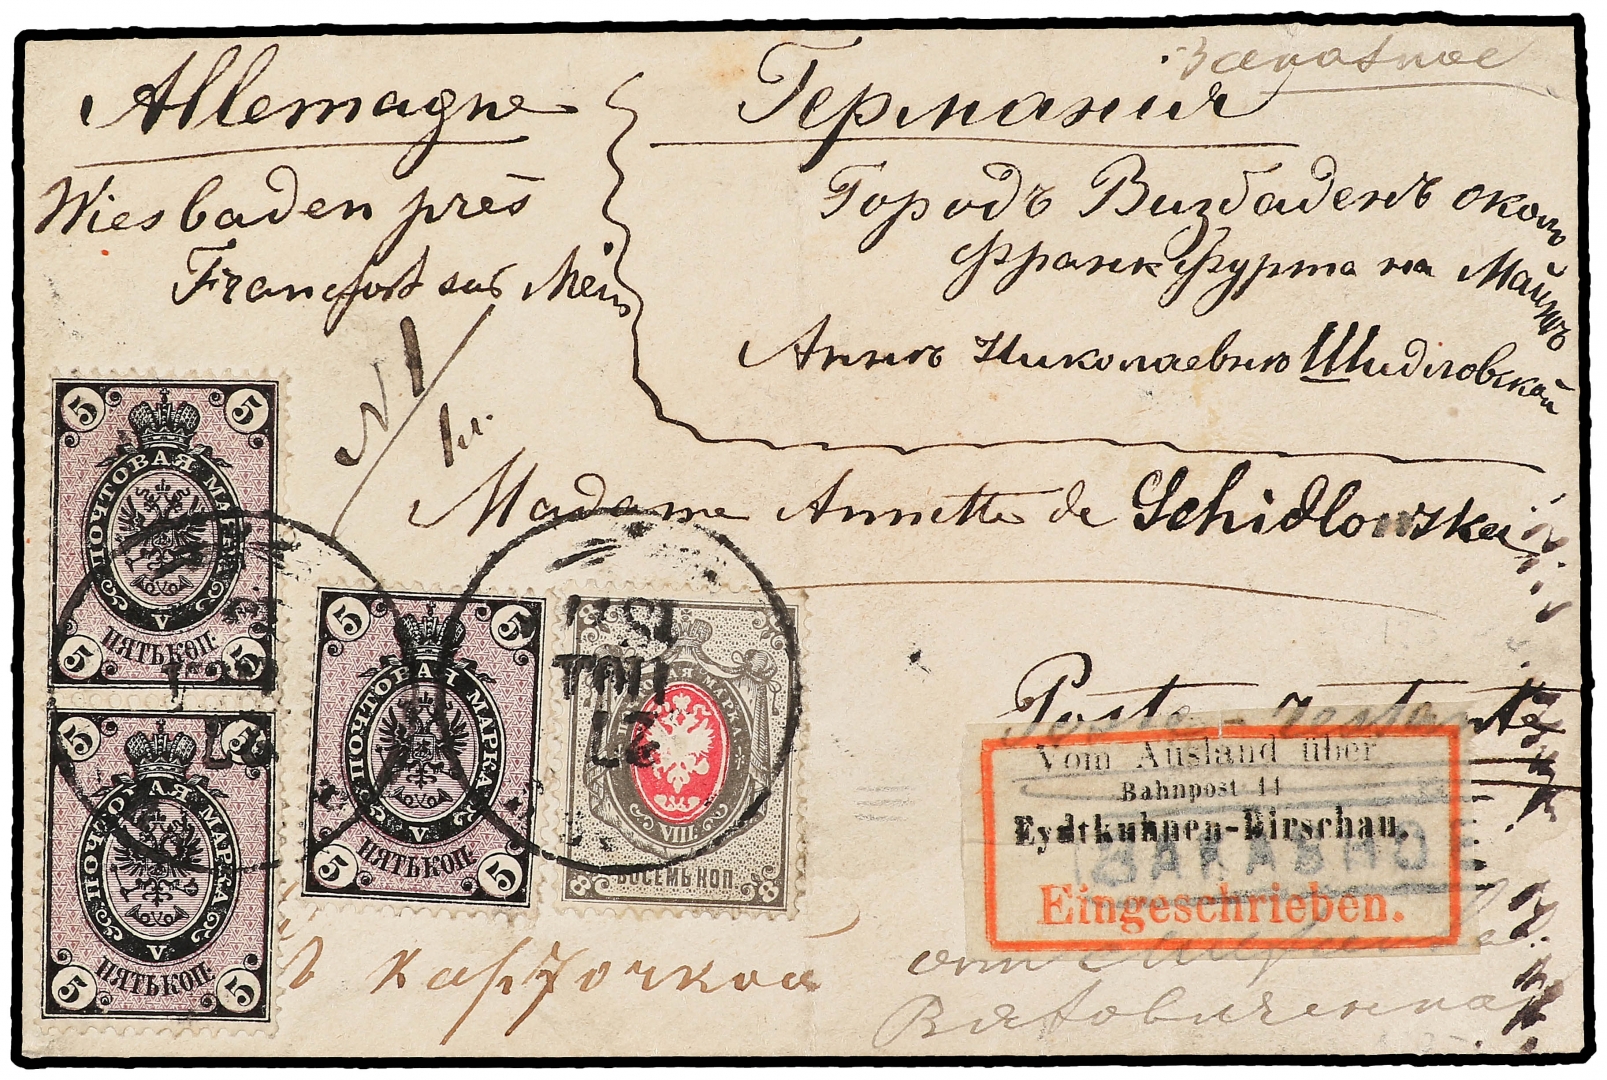 Заказное
Allemagne
Германия
Wiesbaden près
Francfort sur Mein
Городъ Визбаденъ около
Франкфурта на Майнѣ
Аннѣ Николаевнѣ Шидловской
N 1
1 л.
Madame Annette de Schidlowskei
Poste-restante
Vom Ausland über
Bahnpost 11
Eydtkuhnen-Dirschau.
ЗАКАЗНОЕ
Eingeschrieben.
карточкой
5 5
ПОЧТОВАЯ МАРКА
V
ПЯТЬ КОП.
5 5
5 5
ПОЧТОВАЯ МАРКА
V
ПЯТЬ КОП.
5 5
5 5
ПОЧТОВАЯ МАРКА
V
ПЯТЬ КОП.
5 5
8 8
ПОЧТОВАЯ МАРКА
VIII
ВОСЕМЬ КОП.
8 8